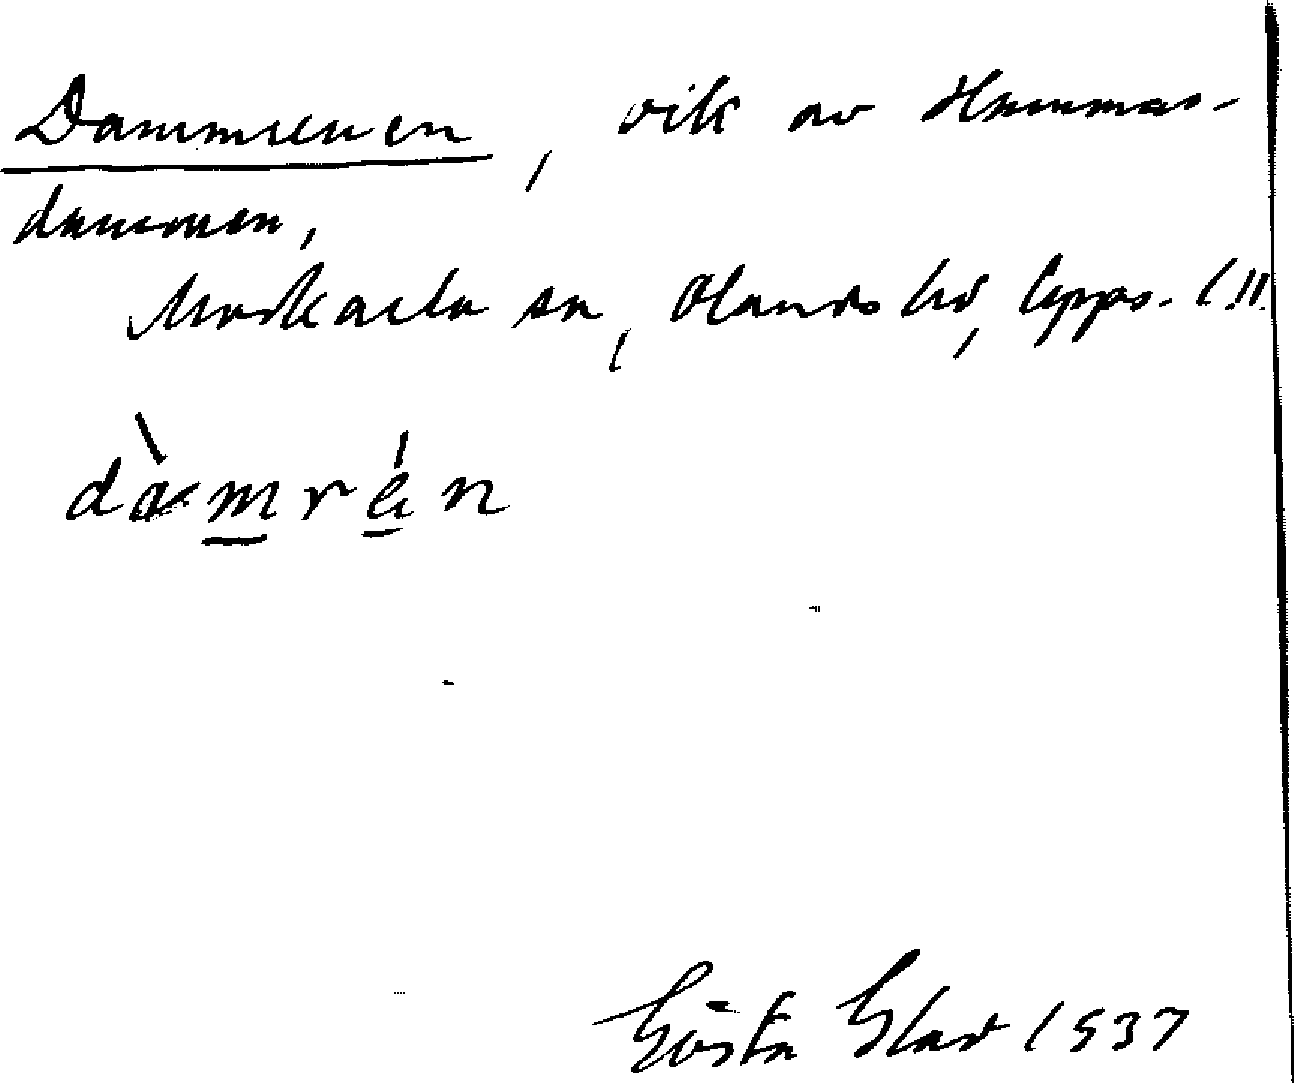 Dammrenen, vik av Hammar-
dammen,
Morkarla sn, Olands hd, Upps. l.
dàmrén
Gösta Glad 1937